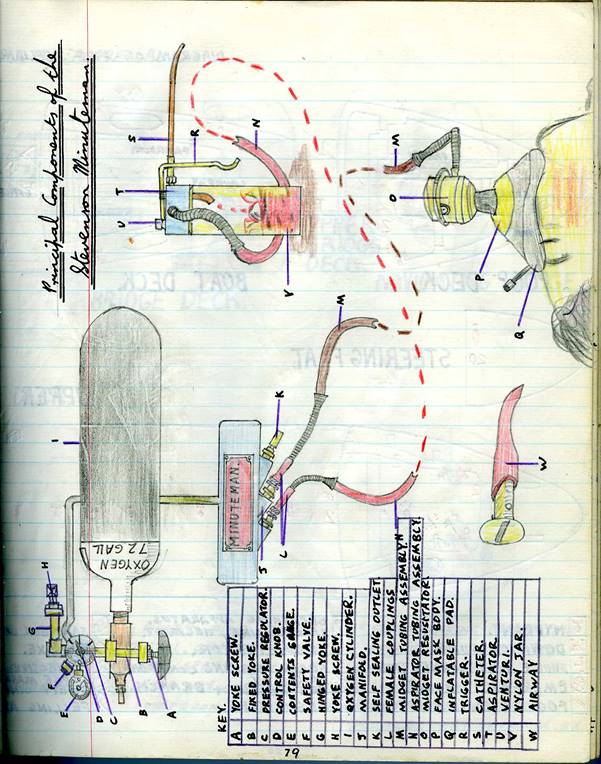 Principal Components of the
Stevenson Minuteman.
OXYGEN
72 GALL
MINUTEMAN.
A
B
C
D
E
F
G
H
I
J
K
L
M
M
M
N
O
P
Q
R
S
T
U
V
W
KEY.
A YOKE SCREW.
B FIXED YOKE.
C PRESSURE REGULATOR.
D CONTROL KNOB.
E CONTENTS GAUGE.
F SAFETY VALVE.
G HINGED YOKE.
H YOKE SCREW.
I OXYGEN CYLINDER.
J MANIFOLD.
K SELF SEALING OUTLET
L FEMALE COUPLINGS
M MIDGET TUBING ASSEMBLY.
N ASPIRATOR TUBING ASSEMBLY.
O MIDGET RESUSITATOR.
P FACE MASK BODY.
Q INFLATABLE PAD.
R TRIGGER.
S CATHETER.
T ASPIRATOR.
U VENTURI.
V NYLON JAR.
W AIRWAY
79